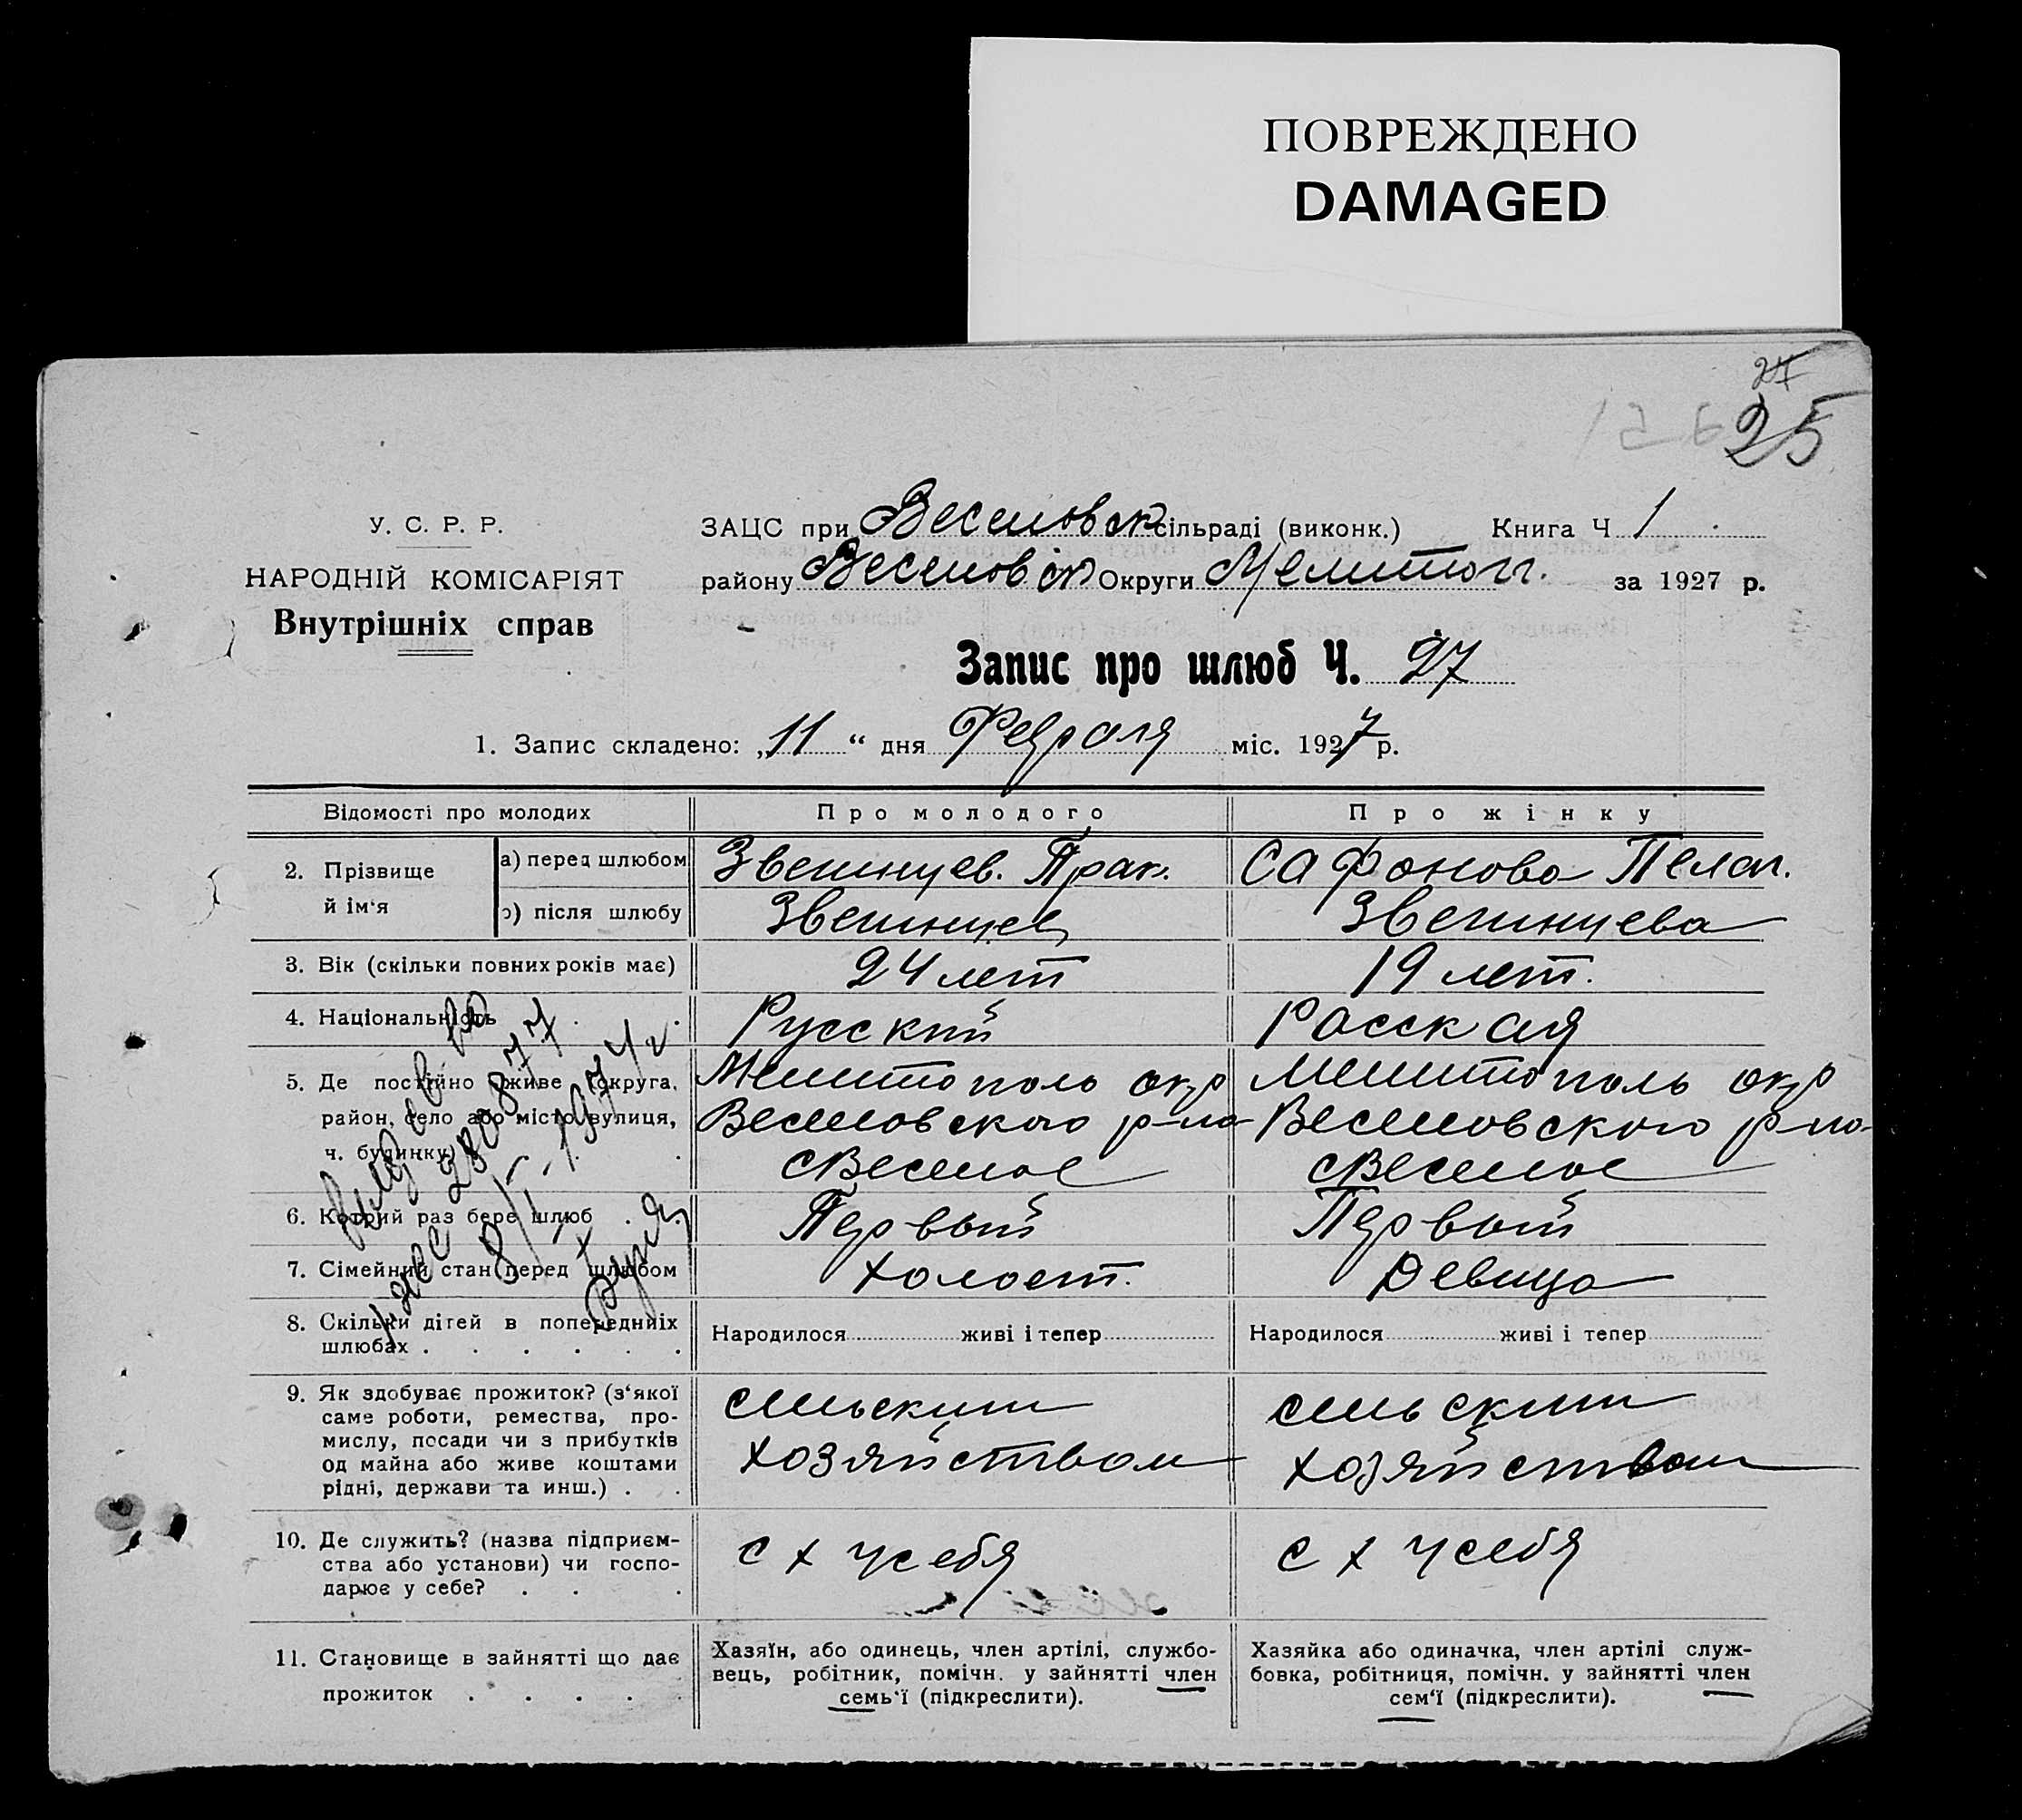 ПОВРЕЖДЕНО
DAMAGED
27
25
У. С. Р. Р.
НАРОДНІЙ КОМІСАРІЯТ
Внутрішніх справ
ЗАЦС при Веселовск сільраді (виконк.) Книга Ч 1
району Веселовск Округи Мелитоп. за 1927 р.
Запис про шлюб Ч. 27
1. Запис складено: „11“ дня Февраля міс. 1927 р.
Відомості про молодих Про молодого Про жінку
2. Прізвище й ім‘я
а) перед шлюбом Звегинцев. Прак. Сафонова Пелаг.
б) після шлюбу Звегинцев Звегинцева
3. Вік (скільки повних років має) 24 лет 19 лет.
4. Національність Русский Расская
5. Де постійно живе (округа, Мелитополь окр Мелитополь окр
район, село або місто, вулиця, Веселовского р-на Веселовского р-на
ч. будинку) с Веселое с Веселое
6. Котрий раз бере шлюб Первый Первый
7. Сімейний стан перед шлюбом Холост. Девица
8. Скільки дітей в попередніїх Народилося живі і тепер Народилося живі і тепер
шлюбах
9. Як здобуває прожиток? (з‘якої сельским сельским
саме роботи, ремества, про-
мислу, посади чи з прибутків хозяйством хозяйством
од майна або живе коштами
рідні, держави та инш.)
10. Де служить? (назва підприєм- с х у себя с х у себя
ства або установи) чи госпо-
дарює у себе?
11. Становище в зайнятті що дає прожиток
Хазяїн, або одинець, член артілі, службо-
вець, робітник, помічн. у зайнятті член
семь‘ї (підкреслити).
Хазяйка або одиначка, член артілі служ-
бовка, робітниця, помічн. у зайнятті член
сем‘ї (підкреслити).
280877
1974 г